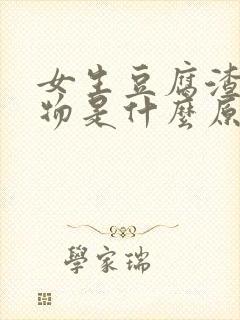 女生豆腐渣
物是什麼原
學家瑞